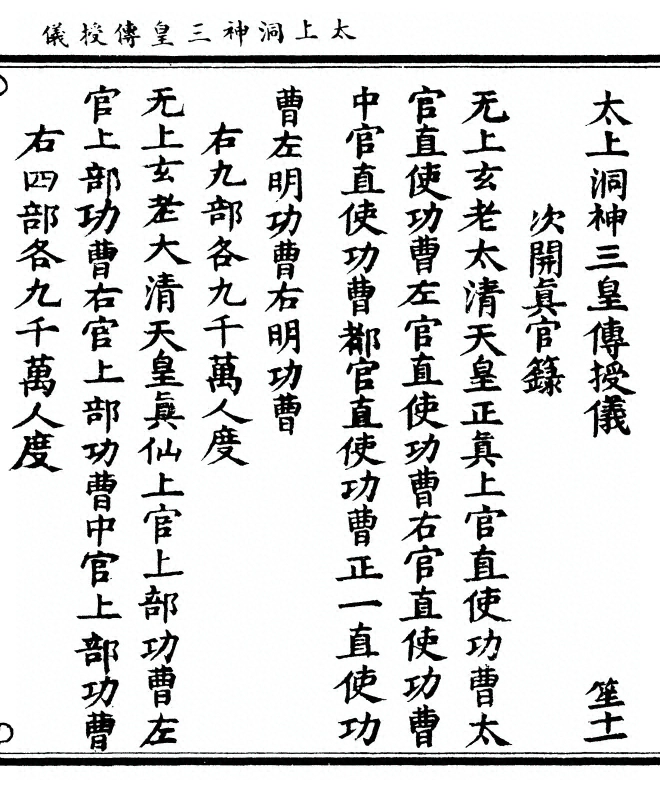 太上洞神三皇傳授儀
太上洞神三皇傳授儀 笙十一
次開眞官籙
无上玄老太清天皇正眞上官直使功曹太
官直使功曹左官直使功曹右官直使功曹
中官直使功曹都官直使功曹正一直使功
曹左明功曹右明功曹
右九部各九千萬人度
无上玄老大清天皇眞仙上官上部功曹左
官上部功曹右官上部功曹中官上部功曹
右四部各九千萬人度